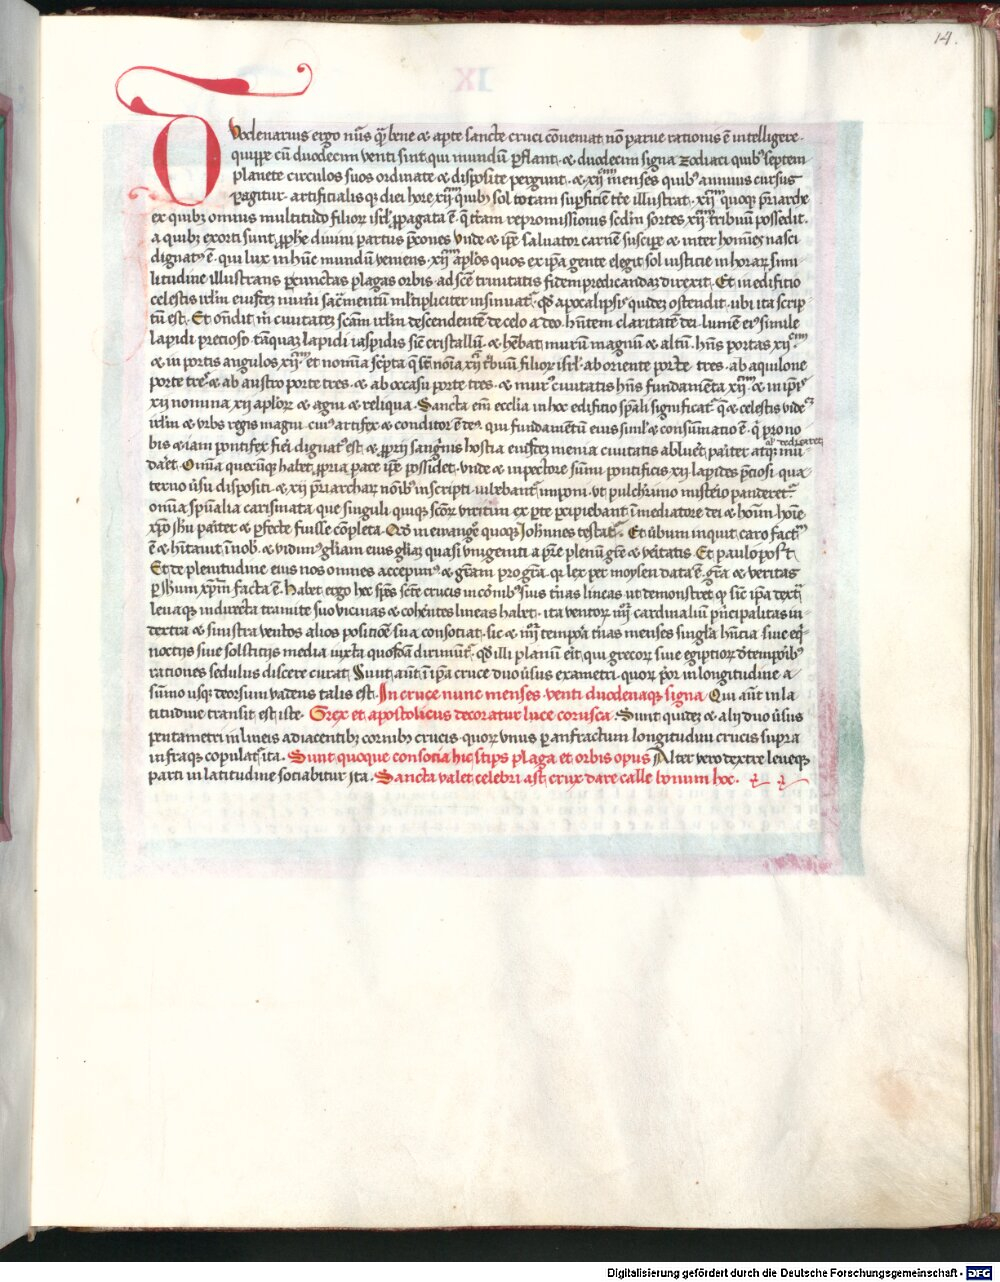 14.
Duodenarius ergo nũs q̃ bene ⁊ apte sancte cruci cõveniat nõ parue rationis ẽ intelligere.
quippe cũ duodecim venti sint qui mundũ ꝑflant. ⁊ duodecim signa zodiaci quibꝰ septem
planete circulos suos ordinate ⁊ disposite pergunt. ⁊ xij menses quibꝰ annuus cursus
ꝑagitur. artificialisqꝫ diei hore xij quibꝰ sol totam suꝑficiẽ tr̃e illustrat. xij quoqꝫ pr̃iarche
ex quibꝫ omnis multitudo filioꝝ isrl̃ ꝓpagata ẽ. q̃ tr̃am repromissionis scd̃m sortes xij tribuũ possedit.
a quibꝫ exorti sunt ꝓph̃e divini partus p̃cones vnde ⁊ ip̃e saluator carnẽ suscipe ⁊ inter homĩes nasci
dignatꝰ ẽ. qui lux in hũc mundũ veniens. xij ap̃los quos ex ip̃a gente elegit sol iusticie in horaꝝ simi-
litudine illustrans ꝑ cunctas plagas orbis ad scẽ trinitatis fidem predicandaꝫ direxit. Et in edificio
celestis irlm̃ eiusdeꝫ nũri sacr̃mentũ ml̃tipliciter insinuatᷣ. qd̃ apocalipsis quideꝫ ostendit. ubi ita scrip-
tũ est. Et oñdit m̃ ciuitateꝫ scãm irlm̃ descendentẽ de celo a deo. hñtem claritatẽ dei. lumẽ eiꝰ simile
lapidi precioso tãquaꝫ lapidi iaspidis sic̃ cristallũ. ⁊ hẽbat murũ magnũ ⁊ altũ. hñs portas xij
⁊ in portis angulos xij et nomĩa sc̃pta q̃ st̃ noĩa xij tribuũ filioꝝ isrl̃. ab oriente porte tres. ab aquilone
porte tres ⁊ ab austro porte tres. ⁊ ab occasu porte tres. ⁊ murꝰ ciuitatis hñs fundamẽta xij. ⁊ in ip̃is
xij nomina xij aploꝝ ⁊ agni ⁊ reliqua. Sancta em̃ ecclia in hoc edificio sp̃ali significatᷣ. q̃ ⁊ celestis videtᷣ
irlm̃ ⁊ vrbs regis magni cuiꝰ artifex ⁊ conditor ẽ deꝰ. qui fundamẽtũ eius simil̃ ⁊ consũmatio ẽ. q̃ pro no
bis ⁊ iam pontifex fieri dignatꝰ est ⁊ ꝓprij sanguĩs hostia eiusdeꝫ menia ciuitatis abluẽt pariter atqꝫ mũ-
daret. Omĩa quecũqꝫ habet ꝓpria pace ip̃e possidet. vnde ⁊ in pectore sũmi pontificis xij lapides p̃ciosi qua-
terno ũsu dispositi ⁊ xij pr̃iarchaꝝ nõibꝰ inscripti iubebantᷣ imponi. vt pulcherrimo misterio panderetᷣ
omĩa spũalia carismata que singuli quiqꝫ scõꝝ viritim ex ꝑte ꝑcipiebant ĩ mediatore dei ⁊ hoĩm hoĩe
xp̃o ihũ pariter ⁊ ꝑfecte fuisse cõpleta. Qd̃ in ewangel̃ quoqꝫ Johãnes testatᷣ. Et ũbum inquit caro factũ
ẽ ⁊ hĩtauit ĩ nobis. ⁊ vidimꝰ gl̃iam eius gl̃iaꝫ quasi vnigeniti a p̃re plenũ gr̃e ⁊ veritatis Et paulo post
Et de plenitudine eius nos omnes accepimꝰ ⁊ gr̃am pro gr̃a. qr lex per moysen data ẽ. gr̃a ⁊ veritas
ꝑ ihum xp̃m facta ẽ. Habet ergo hec sp̃es scẽ crucis in cornibꝰ suis t̃nas lineas ut demonstret ꝙ sic̃ ip̃a dextꝝ
leuaqꝫ in directa tramite suo vicinas ⁊ coherẽtes lineas habet. ita ventoꝝ iiij cardinaliũ prĩcipalitas in
dextra ⁊ sinistra ventos alios positiõe sua consociat. sic ⁊ iiij tempora t̃nas menses singl̃a hñcia siue eq̃-
noctijs siue solsticijs media iuxta quosdã dirimũtᷣ. qd̃ illi planiũ erit qui grecoꝝ siue egiptioꝝ de tempoꝝibꝰ
rationes sedulus discere curat. Sunt aũt ĩ ip̃a cruce duo ũsus exametri. quoꝝ p̃or in longitudine a
sũmo usqꝫ deorsum vadens talis est. In cruce nunc menses. venti duodenaqꝫ signa Qui aũt in la
titudine transit est iste. Grex et apostolicus decoratur luce corusca. Sunt quideꝫ ⁊ alij duo ũsus
pentametri in lineis adiacentibꝫ cornibꝫ crucis. quoꝝ vnus ꝑ anfractum longitudinis crucis supra
infraqꝫ copulatᷣ ita. Sunt quoque consona hic stips plaga et orbis opus Alter vero dextre leueqꝫ
parti in latitudine sociabitur ita. Sancta valet celebri ast crux dare calle bonum hoc.
Digitalisierung gefördert durch die Deutsche Forschungsgemeinschaft - DFG